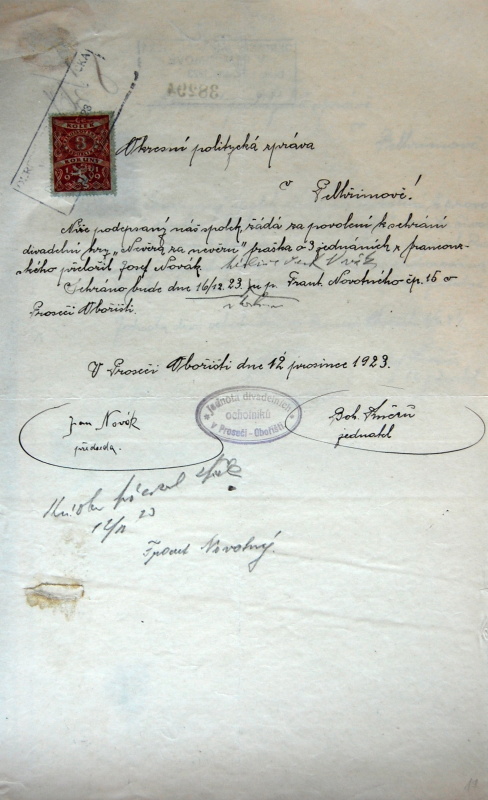 38294
KOLEK
3
KORUNY
Okresní politycká zpráva
v Pelhřimově!
Níže podepsaný náš spolek, žádá za povolení k sehrání
divadelní hry „Nevěra za nevěru" fraška o 3 jednáních z francouz-
ského přeložil Josef Novák.
Sehráno bude dne 16/12. 23. p. Frant. Novotného čp. 15 v
Proseči Obořišti.
V Proseči Obořišti dne 12 prosince 1923.
Jan Novák
předseda.
Jednota divadelních
ochotníků
v Proseči - Obořišti
Boh.
jednatel
zpěk
12/12 23
Frant Novotný.